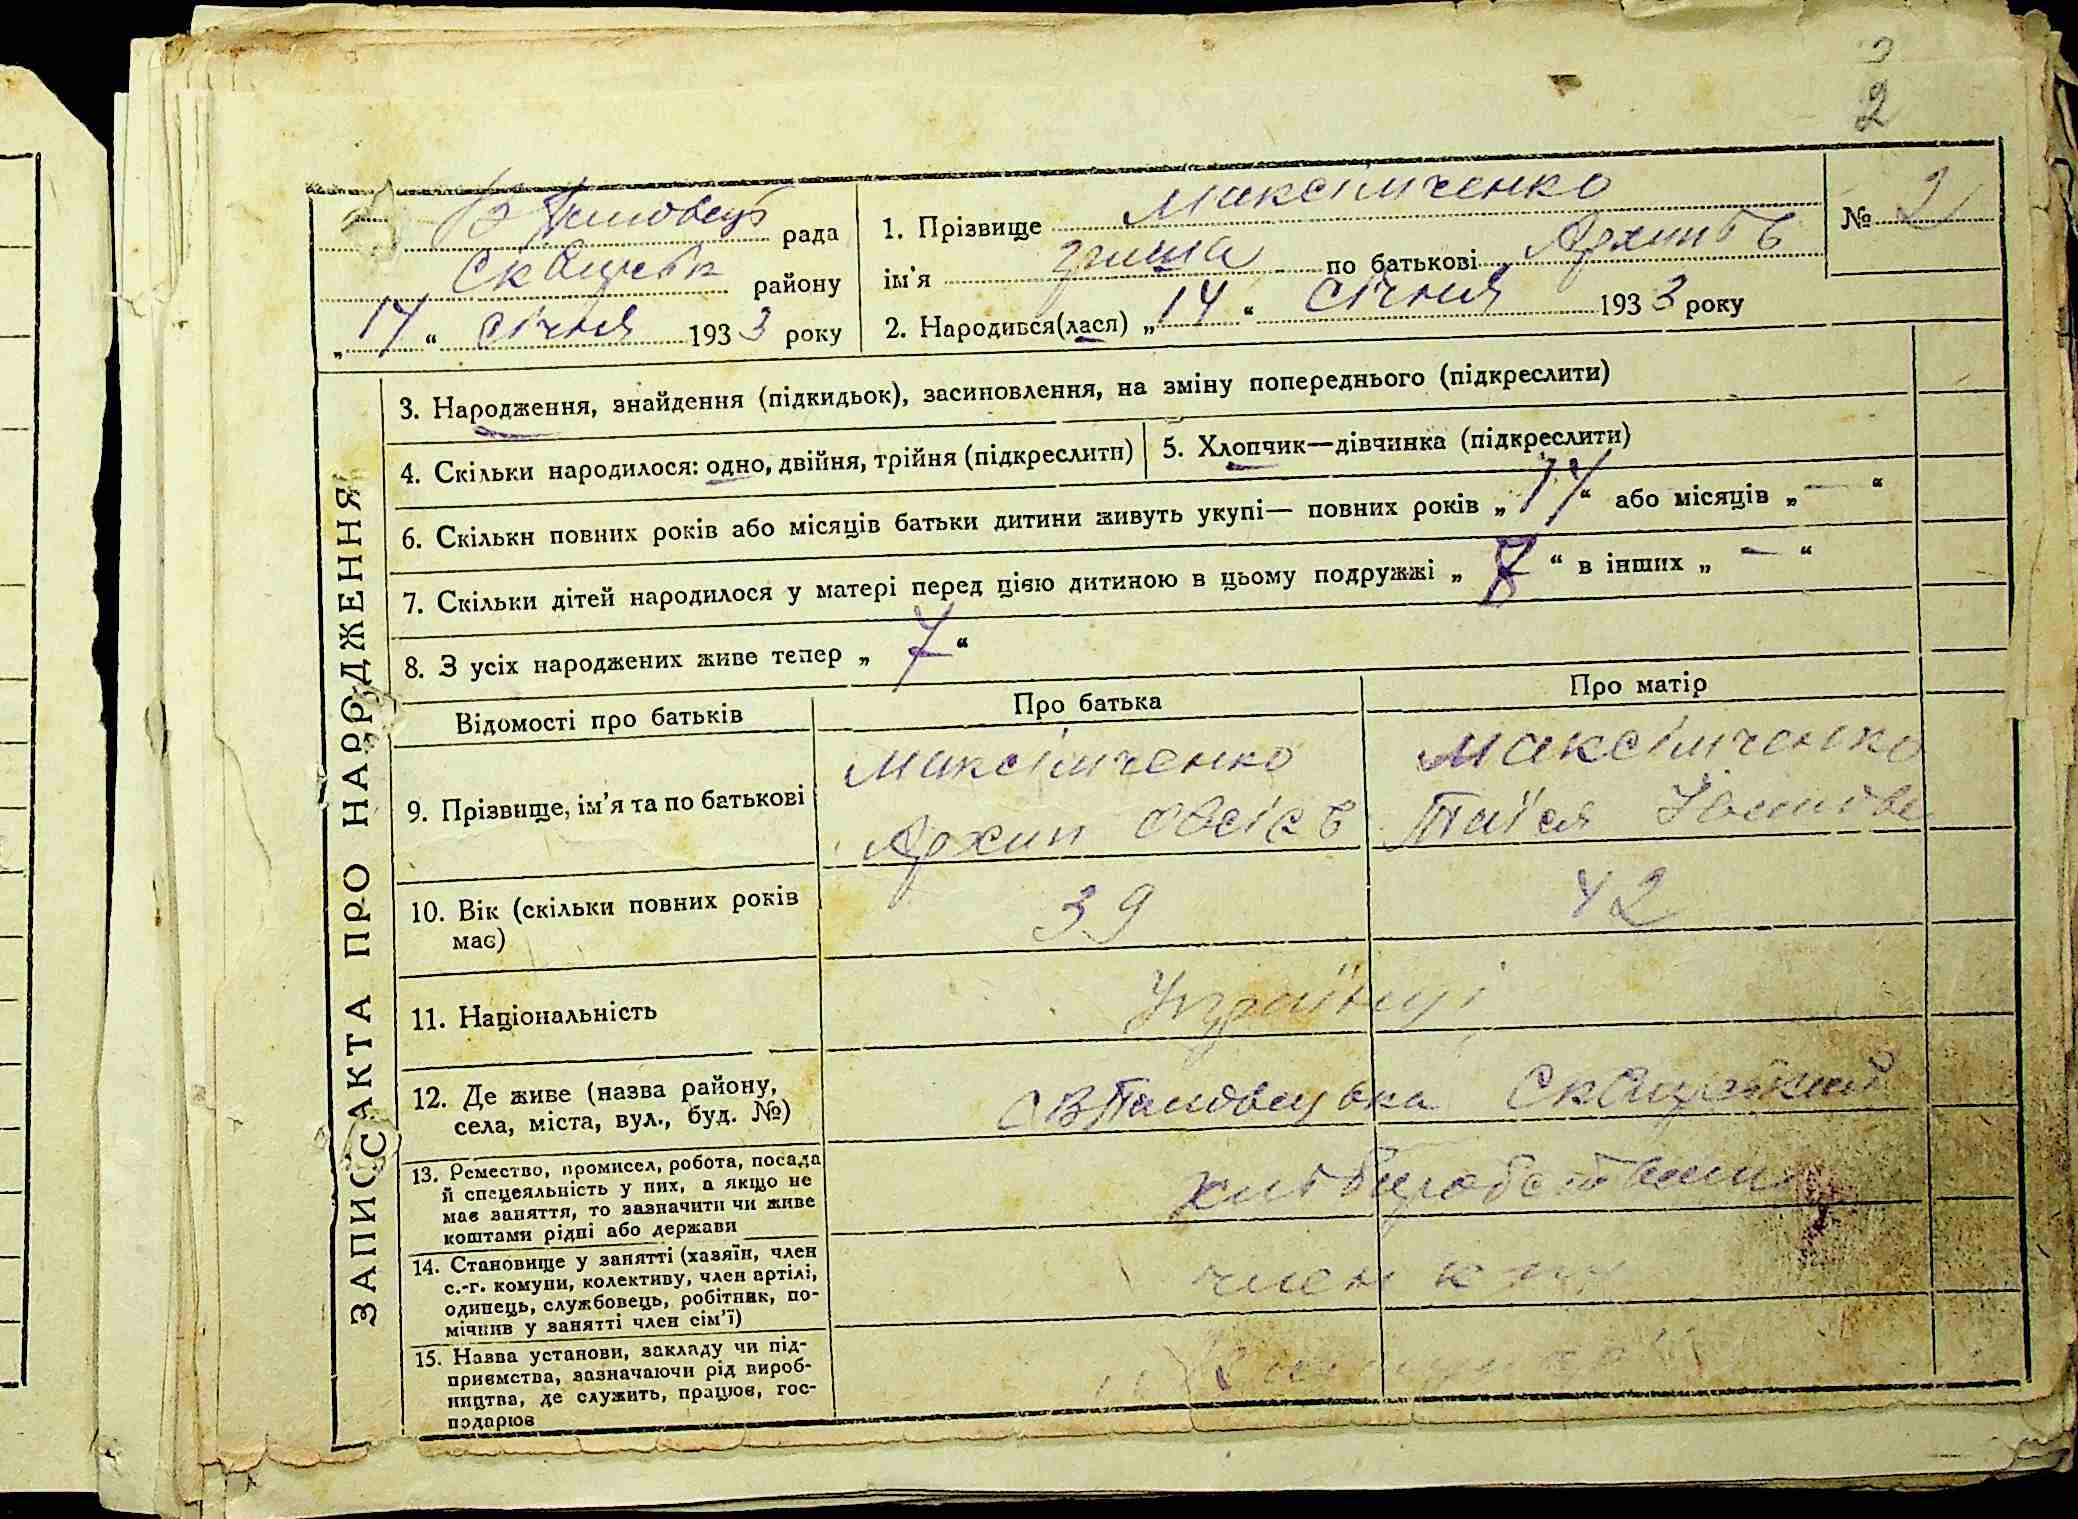 3
2
рада
1. Прізвище Максімченко
№ 2
району
ім'я Гриша по батькові Архипов
„14“ січня 1933 року
2. Народився(лася) „14“ січня 1933 року
ЗАПИС АКТА ПРО НАРОДЖЕННЯ
3. Народження, знайдення (підкидьок), засиновлення, на зміну попереднього (підкреслити)
4. Скільки народилося: одно, двійня, трійня (підкреслити)
5. Хлопчик—дівчинка (підкреслити)
6. Скільки повних років або місяців батьки дитини живуть укупі— повних років „17“ або місяців „—“
7. Скільки дітей народилося у матері перед цією дитиною в цьому подружжі „ “ в інших „—“
8. З усіх народжених живе тепер „7“
Відомості про батьків
Про батька
Про матір
9. Прізвище, ім'я та по батькові
Максімченко
Архип Овсієв
Максімченко
Таїся
10. Вік (скільки повних років
має)
39
42
11. Національність
Українці
12. Де живе (назва району,
села, міста, вул., буд. №)
13. Ремество, промисел, робота, посада
й спецеяльність у них, а якщо не
має заняття, то зазначити чи живе
коштами рідні або держави
хліборобством
14. Становище у занятті (хазяїн, член
с.-г. комуни, колективу, член артілі,
одинець, службовець, робітник, по-
мічнив у занятті член сім'ї)
член
15. Назва установи, закладу чи під-
приємства, зазначаючи рід вироб-
ництва, де служить, працює, гос-
подарює